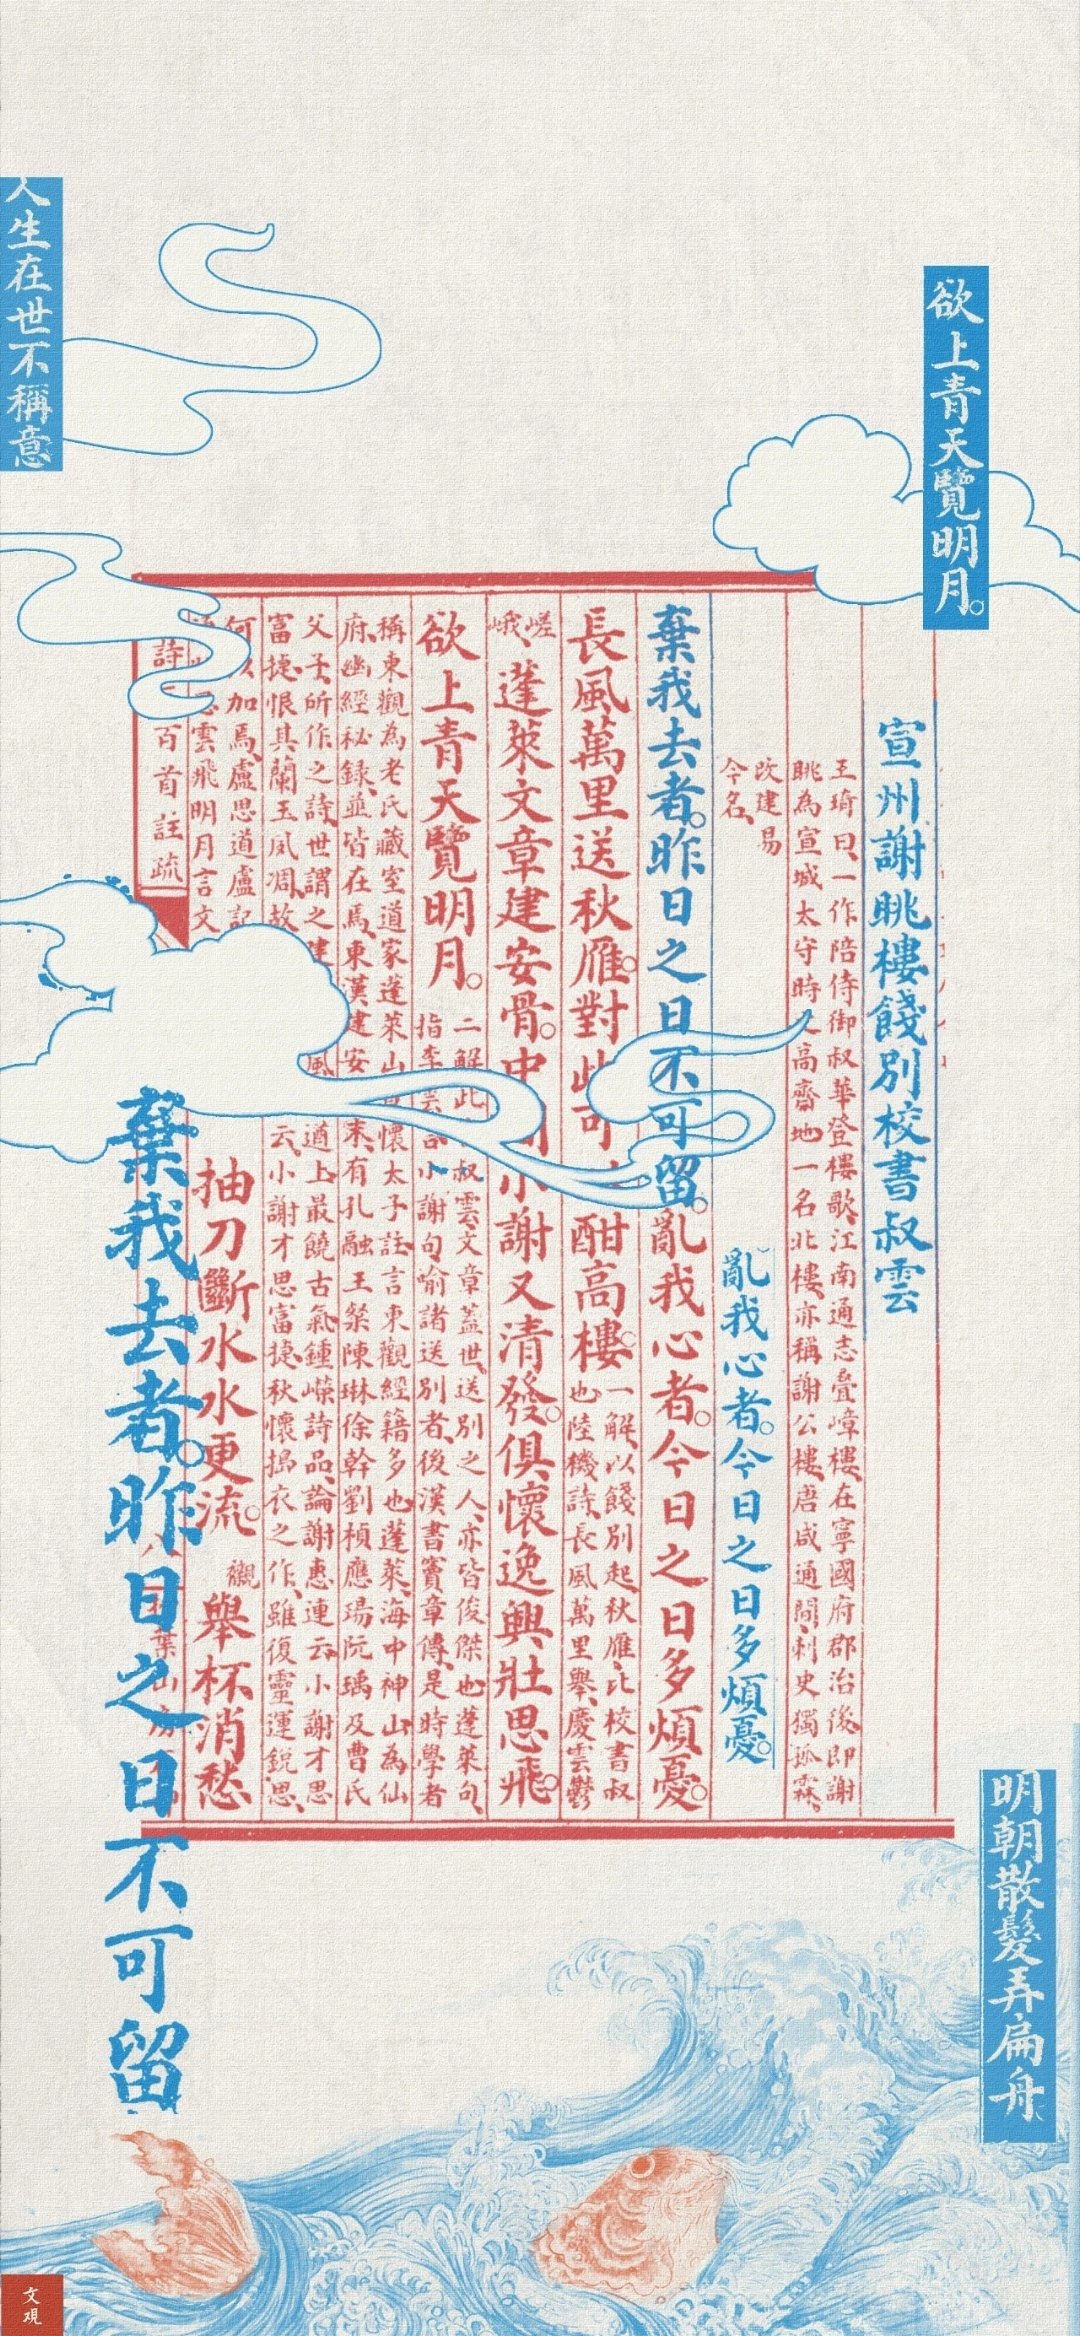 欲上青天覽明月。
宣州謝眺樓餞別校書叔雲
王琦曰、一作陪侍御叔華登樓歌、江南通志、疊嶂樓、在寧國府郡治後、即謝
眺為宣城太守時 高齋地、一名北樓、亦稱謝公樓、唐咸通間、刺史獨孤霖、
改建易
今名、
亂我心者。今日之日多煩憂。
棄我去者。昨日之日不可留。亂我心者。今日之日多煩憂。
長風萬里送秋雁。對此可 酣高樓。
一解、以餞別起、秋雁、比校書叔
也、陸機詩、長風萬里舉、慶雲鬱
嵯
峨、
蓬萊文章建安骨。中 小謝又清發。俱懷逸興壯思飛。
欲上青天覽明月。
二解、此 叔雲、文章蓋世、送別之人、亦皆俊傑也、蓬萊句、
指李 小謝句、喻諸送別者、後漢書竇章傳、是時學者
稱東觀為老氏藏室、道家蓬萊山、 懷太子註、言東觀經籍多也、蓬萊、海中神山、為仙
府、幽經秘錄、並皆在焉、東漢建安 末、有孔融王粲陳琳徐幹劉楨應瑒阮瑀及曹氏
父子、所作之詩、世謂之建 風 遒上、最饒古氣、鍾嶸詩品、論謝惠連云、小謝才思
富捷、恨其蘭玉夙凋、故 云、小謝才思富捷、秋懷搗衣之作、雖復靈運銳思、
何以加焉、盧思道盧記
雲飛明月言文
抽刀斷水水更流。
觀
舉杯消愁
詩 百首註疏
葉山房
棄我去者。昨日之日不可留
人生在世不稱意
明朝散髮弄扁舟、
文观